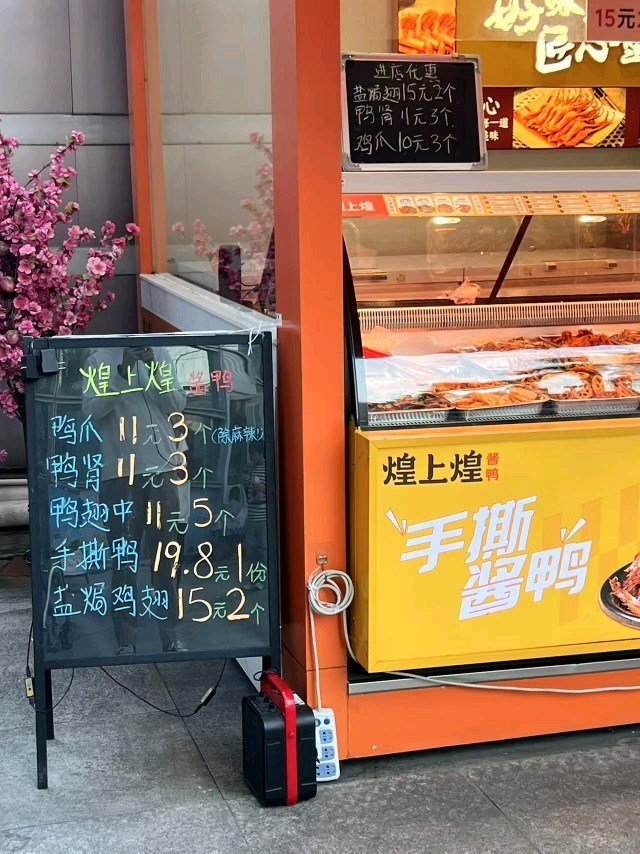 15元
匠心
进店优惠
盐焗翅15元2个
鸭肾11元3个
鸡爪10元3个
心
上煌
煌上煌 酱鸭
鸭爪 11元3个(除麻辣)
鸭肾 11元3个
鸭翅中 11元5个
手撕鸭 19.8元1份
盐焗鸡翅 15元2个
煌上煌 酱鸭
手撕
酱鸭